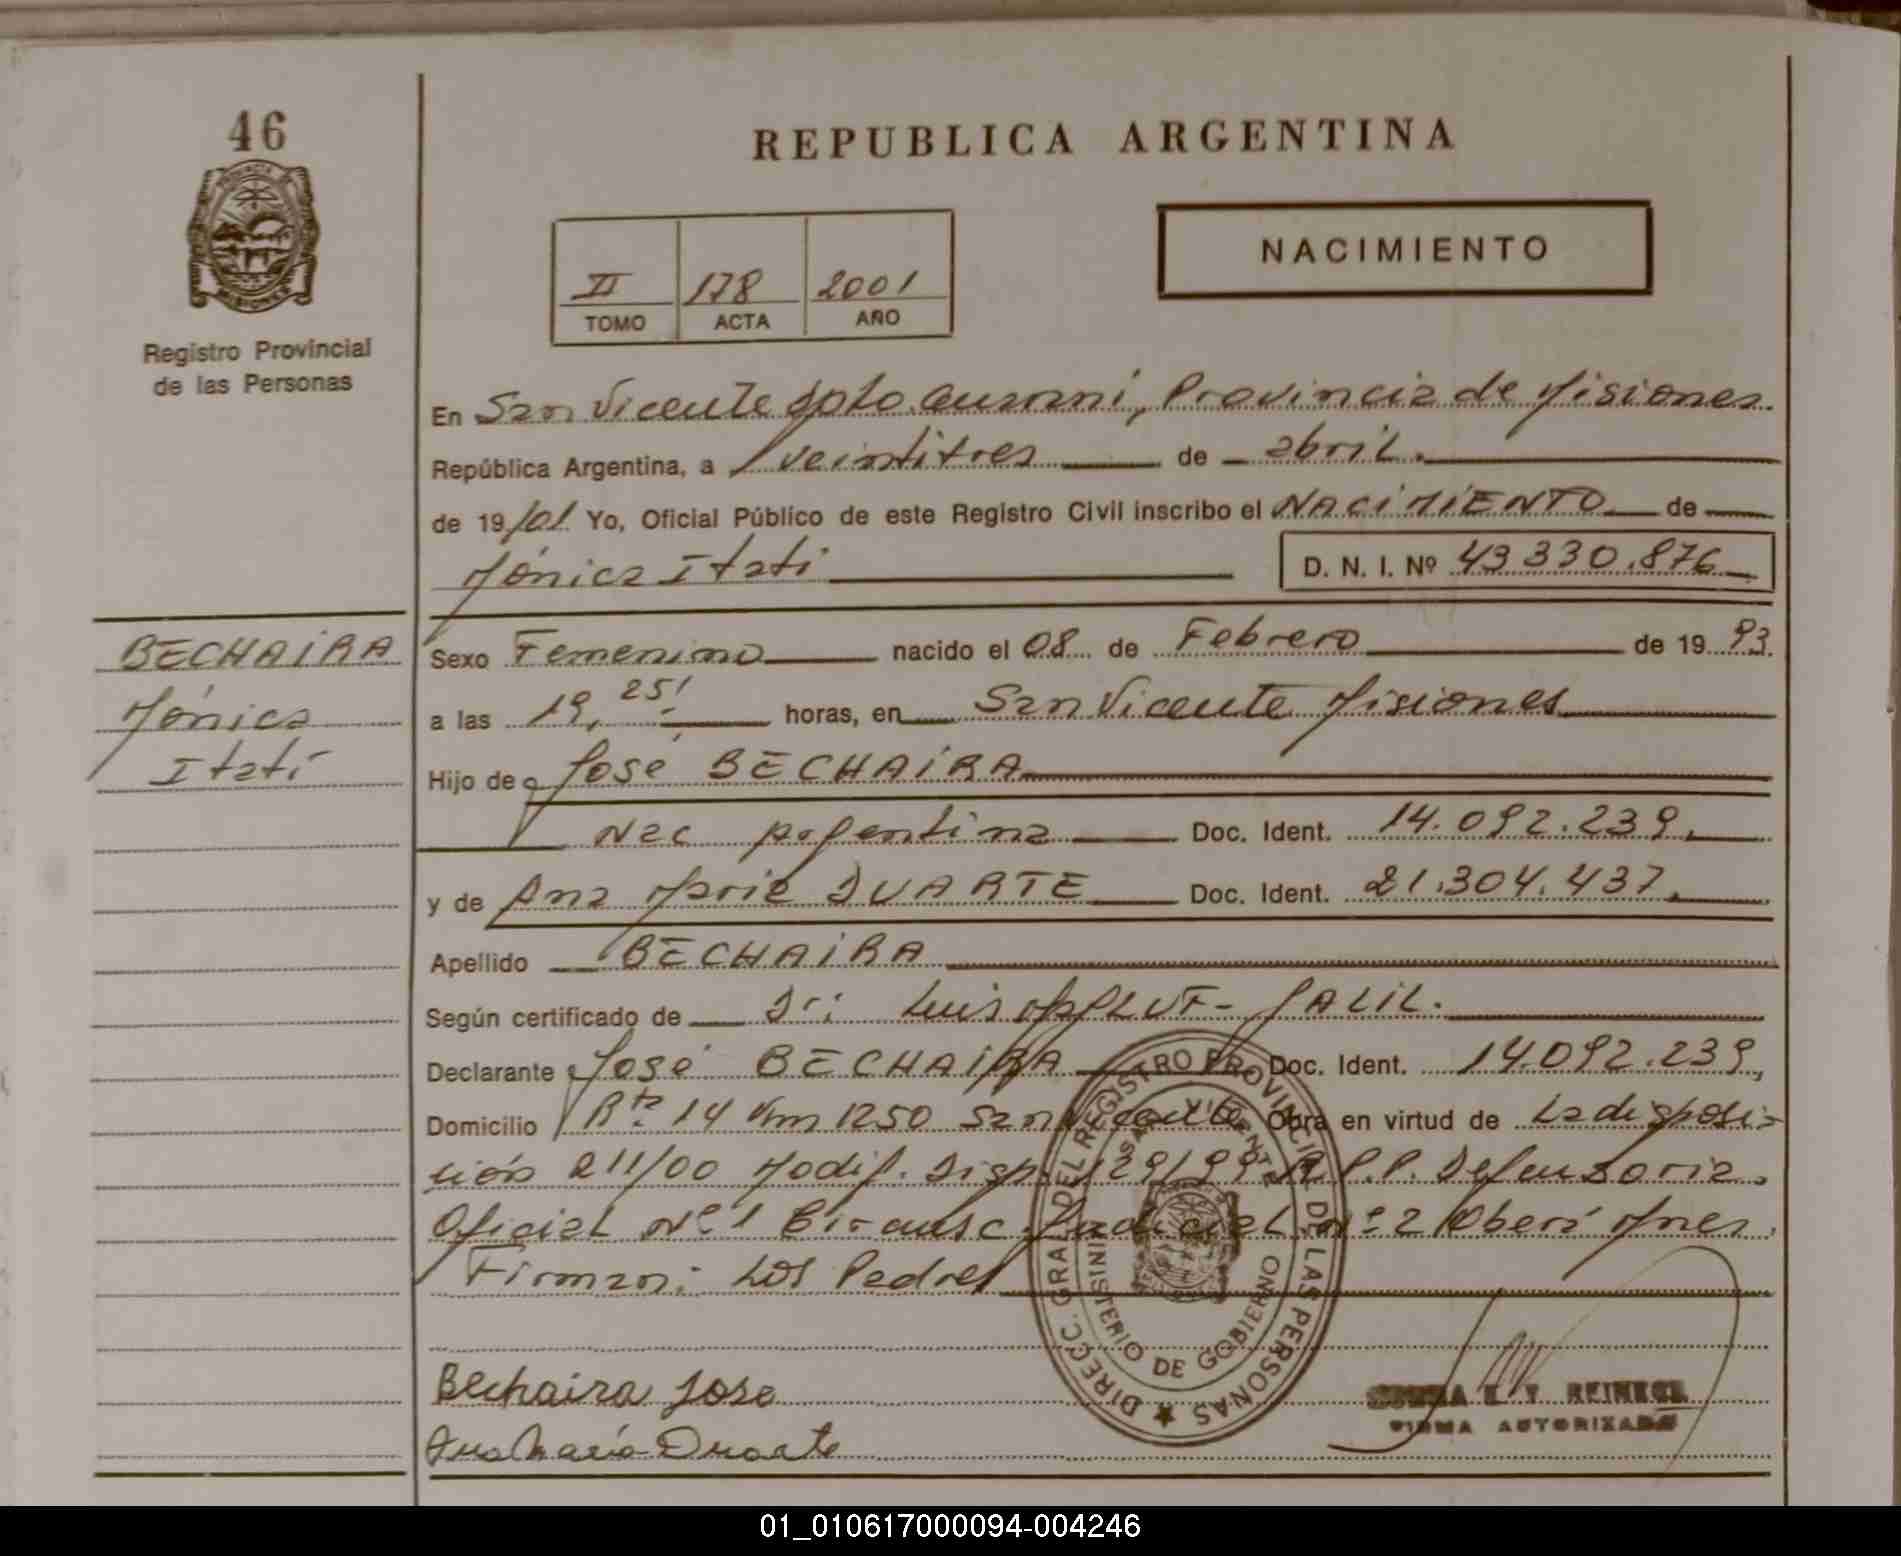 46
REPUBLICA ARGENTINA
NACIMIENTO
II 178 2001
TOMO ACTA AÑO
Registro Provincial
de las Personas
En San Vicente Dpto Guaraní, Provincia de Misiones.
República Argentina, a veintitres de abril.
de 19/01. Yo, Oficial Público de este Registro Civil inscribo el NACIMIENTO de
Mónica Itati D. N. I. Nº 43 330.876
BECHAIRA
Mónica
Itatí
Sexo Femenino nacido el 08 de Febrero de 19 93.
a las 19, 25! horas, en San Vicente Misiones
Hijo de José BECHAIRA
Nac Argentina Doc. Ident. 14.092.239,
y de Ana Maria DUARTE Doc. Ident. 21.304.437,
Apellido BECHAIRA
Según certificado de Dr: Luis JALIL.
Declarante José BECHAIRA Doc. Ident. 14.092.239,
Domicilio Rta 14 Km 1250 San Vicente Obra en virtud de La disposi-
ción 211/00 Modif. Disp. 129/99 R.P.P. Defensoria
Oficial Nº 1 Circunsc. Judicial Nº 2 Oberá Mnes.
Firman: Los Padres
Bechaira Jose
Ana Maria Duarte
DIRECC. GRAL. DEL REGISTRO PROVINCIAL DE LAS PERSONAS
SAN VICENTE
MINISTERIO DE GOBIERNO
REINECK
FIRMA AUTORIZADA
01_010617000094-004246